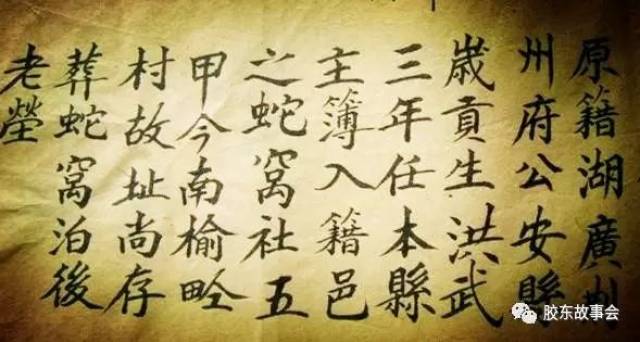 原籍湖廣
州府公安縣
歲貢生洪武
三年任本縣
主簿入籍邑
之蛇窩社五
甲今南榆
村故址尚存
葬蛇窩泊後
老塋
胶东故事会